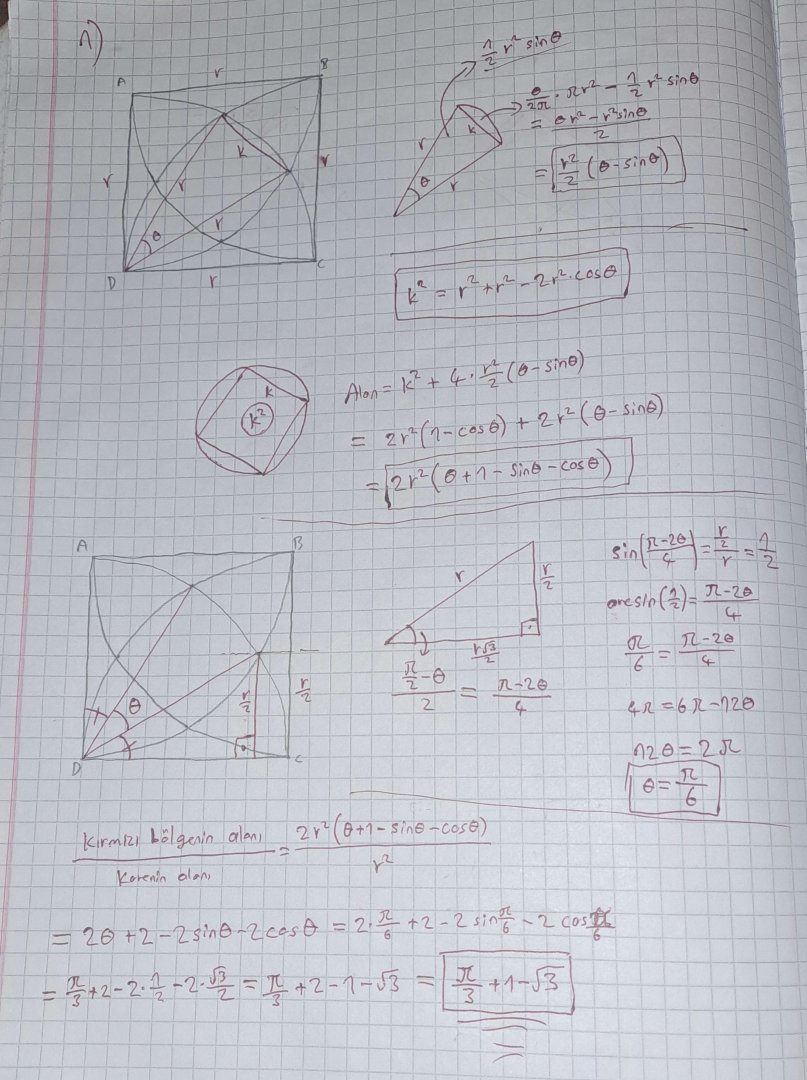 1)
A r B
r k r
r
θ r
D r C
1/2 r² sinθ
θ/2π · πr² − 1/2 r² sinθ
= (θr² − r² sinθ)/2
= r²/2 (θ − sinθ)
r k
θ r
k² = r² + r² − 2r² · cosθ
k
k²
Alan = k² + 4 · r²/2 (θ − sinθ)
= 2r²(1 − cosθ) + 2r²(θ − sinθ)
= 2r²(θ + 1 − sinθ − cosθ)
A B
θ r/2 r/2
D C
r r/2
r√3/2
(π/2 − θ)/2 = (π − 2θ)/4
sin((π − 2θ)/4) = (r/2)/r = 1/2
arcsin(1/2) = (π − 2θ)/4
π/6 = (π − 2θ)/4
4π = 6π − 12θ
12θ = 2π
θ = π/6
Kırmızı bölgenin alanı / Karenin alanı = 2r²(θ + 1 − sinθ − cosθ) / r²
= 2θ + 2 − 2sinθ − 2cosθ = 2 · π/6 + 2 − 2 sin π/6 − 2 cos π/6
= π/3 + 2 − 2 · 1/2 − 2 · √3/2 = π/3 + 2 − 1 − √3 = π/3 + 1 − √3